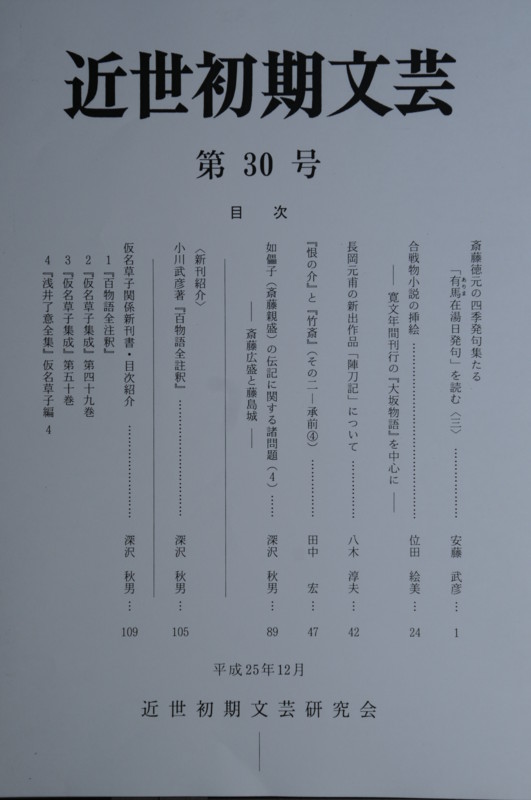 近世初期文芸
第30号
目次
斎藤徳元の四季発句集たる
「有馬在湯日発句」を読む〈三〉…………………安藤 武彦…1
ありま
合戦物小説の挿絵…………………位田 絵美…24
―― 寛文年間刊行の『大坂物語』を中心に ――
長岡元甫の新出作品「陣刀記」について…………八木 淳夫…42
『恨の介』と『竹斎』(その二―承前④)…………田中 宏…47
如儡子(斎藤親盛)の伝記に関する諸問題(4)……深沢 秋男…89
―― 斎藤広盛と藤島城 ――
〈新刊紹介〉
小川武彦著『百物語全注釈』…………………深沢 秋男…105
仮名草子関係新刊書・目次紹介…………………深沢 秋男…109
1『百物語全注釈』
2『仮名草子集成』第四十九巻
3『仮名草子集成』第五十巻
4『浅井了意全集』仮名草子編 4
平成25年12月
近世初期文芸研究会